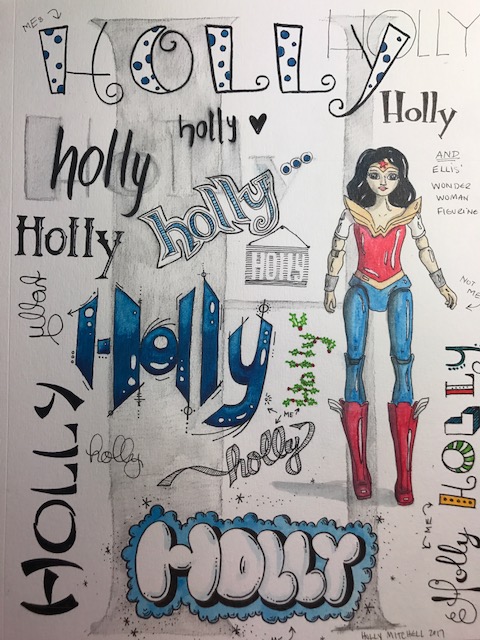 ME?
HOLLY
HOLLY
Holly
holly
holly
holly
Holly
HOLLY
AND
ELLIS'
WONDER
WOMAN
FIGURINE
NOT
ME
Holly
Holly
HOLLY
ME
HOLLY
holly
holly
HOLLY
ME
Holly
HOLLY
HOLLY MITCHELL 2017